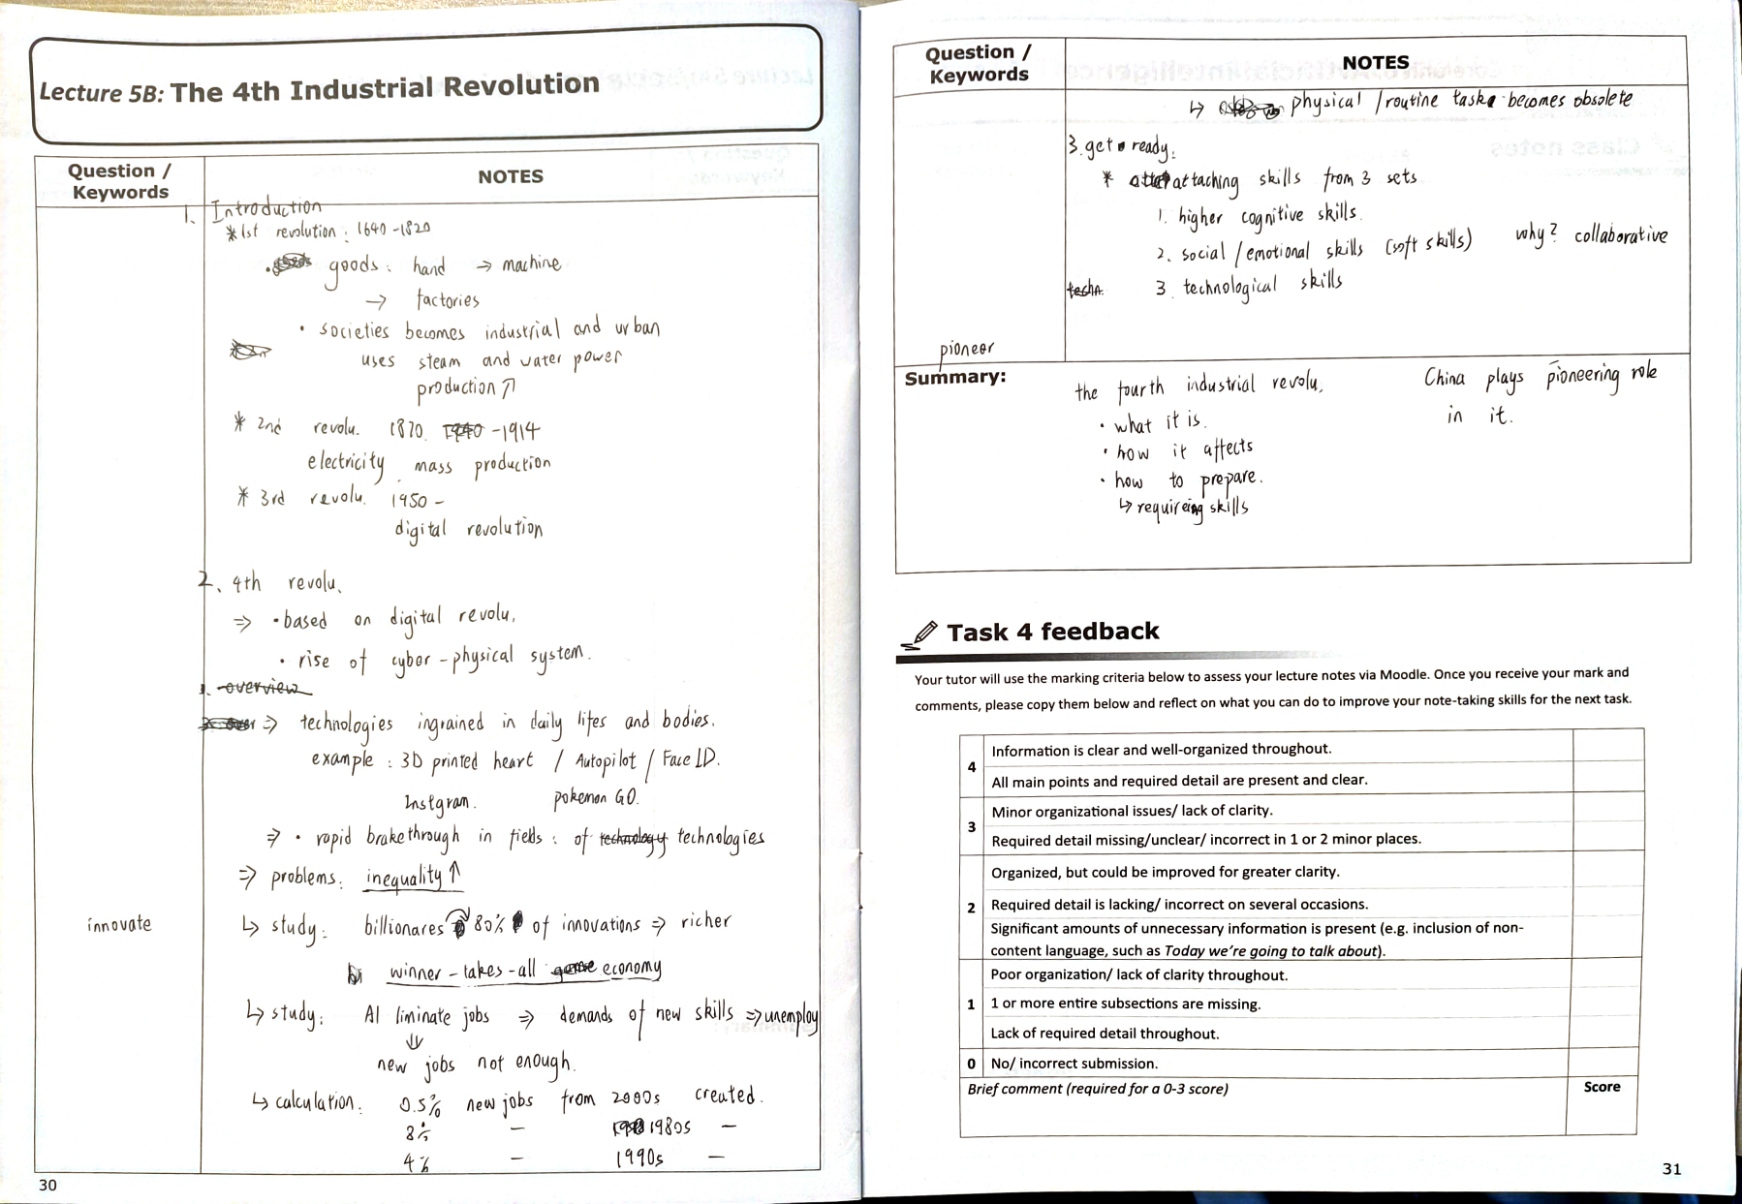 Lecture 5B: The 4th Industrial Revolution
Question / Keywords
NOTES
1. Introduction
* 1st revolution : 1640 - 1820
• goods : hand → machine
→ factories
• societies becomes industrial and urban
uses steam and water power
production ↗
* 2nd revolu. 1870. 1940 - 1914
electricity . mass production
* 3rd revolu. 1950 -
digital revolution
2. 4th revolu.
⇒ • based on digital revolu.
• rise of cyber - physical system.
1. overview
⇒ technologies ingrained in daily lifes and bodies.
example : 3D printed heart / Autopilot / Face ID.
Instgram. pokemon GO.
⇒ • rapid brakethrough in fields : of technology technologies
⇒ problems : inequality ↑
innovate
↳ study : billionares 80% of innovations ⇒ richer
winner - takes - all game economy
↳ study : AI liminate jobs ⇒ demands of new skills ⇒ unemploy
⇓
new jobs not enough.
↳ calculation : 0.5% new jobs from 2000s created.
8% — 1980s —
4% — 1990s —
30
Question / Keywords
NOTES
↳ physical / routine task becomes obsolete
3. get ready :
* attaching skills from 3 sets
1. higher cognitive skills.
2. social / emotional skills (soft skills) why? collaborative
techn. 3. technological skills
pioneer
Summary:
the fourth industrial revolu. China plays pioneering role
• what it is. in it.
• how it affects
• how to prepare.
↳ requireing skills
Task 4 feedback
Your tutor will use the marking criteria below to assess your lecture notes via Moodle. Once you receive your mark and
comments, please copy them below and reflect on what you can do to improve your note-taking skills for the next task.
4
Information is clear and well-organized throughout.
All main points and required detail are present and clear.
3
Minor organizational issues/ lack of clarity.
Required detail missing/unclear/ incorrect in 1 or 2 minor places.
2
Organized, but could be improved for greater clarity.
Required detail is lacking/ incorrect on several occasions.
Significant amounts of unnecessary information is present (e.g. inclusion of non-
content language, such as Today we're going to talk about).
1
Poor organization/ lack of clarity throughout.
1 or more entire subsections are missing.
Lack of required detail throughout.
0 No/ incorrect submission.
Brief comment (required for a 0-3 score) Score
31